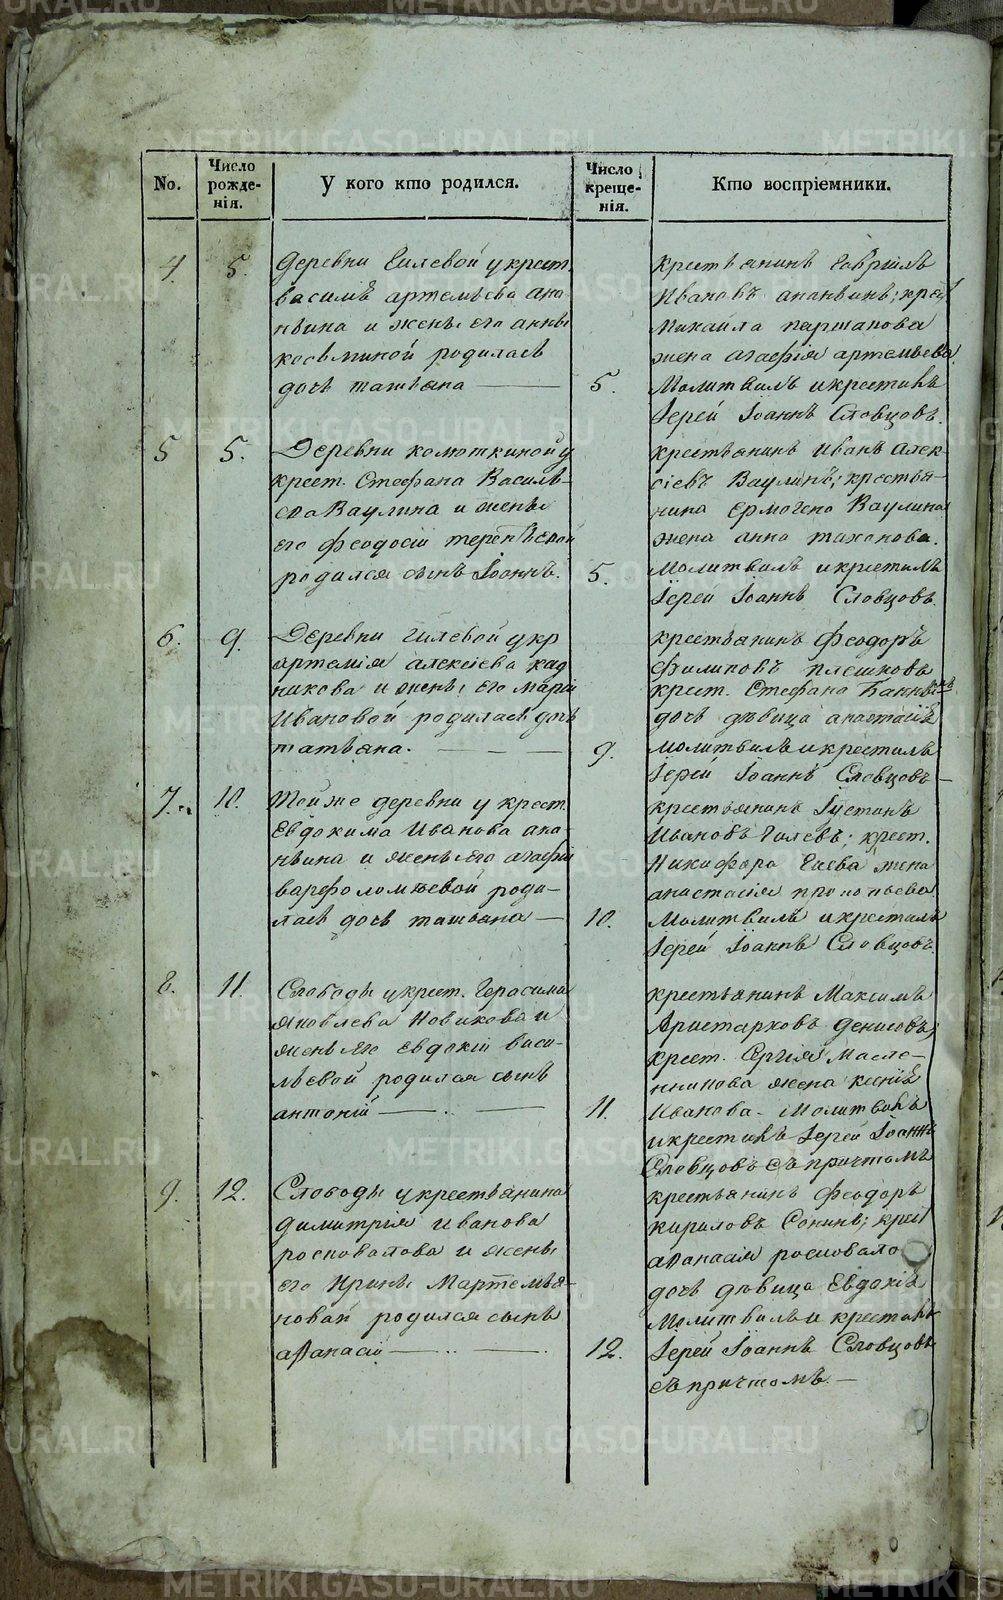 No.
Число рожде-нія.
У кого кто родился.
Число креще-нія.
Кто воспріемники.
4. 5.
деревни Гилевой у крест.
василія артемьева ана-
ньина и жены его анны
косьминой родилась
дочь татьяна
5.
крестьянинъ Гавріилъ
Ивановъ ананьинъ; крес.
михаила партанова
жена агафія артемьева.
Молитвилъ и крестилъ
Іерей Іоаннъ Словцовъ.
5 5.
Деревни колюткиной у
крест. Стефана Василь-
ева Ваулина и жены
его феодосіи терентьевой
родился сынъ Іоаннъ.
5.
крестьянинъ Иванъ алек-
сіевъ Ваулинъ; крестья-
нина Ермогена Ваулина
жена анна тиханова.
молитвилъ и крестилъ
Іерей Іоаннъ Словцовъ.
6. 9.
Деревни гилевой у кр
артемія алексіева кад
никова и жены его маріи
Ивановой родилась дочь
татьяна.
9.
крестьянинъ феодоръ
филиповъ плешковъ
крест. Стефана
дочь дѣвица анастасія
молитвилъ и крестилъ
Іерей Іоаннъ Словцовъ
7. 10.
Тойже деревни у крест.
Евдокима Иванова ана-
ньина и жены его агафіи
варфоломѣевой роди-
лась дочь татьяна
10.
крестьянинъ Іустинъ
Ивановъ Гилевъ; крест.
Никифора Гилева жена
анастасія прокопьева
Молитвилъ и крестилъ
Іерей Іоаннъ Словцовъ.
8. 11.
Слободы у крест. Герасима
яковлева Новикова и
жены его Евдокіи васи-
льевой родился сынъ
антоній
11.
крестьянинъ Максимъ
Аристарховъ денисовъ;
крест. Сергія масле-
нникова жена ксенія
Иванова. Молитвилъ
и крестилъ Іерей Іоаннъ
Словцовъ съ причтомъ
9. 12.
Слободы у крестьянина
димитрія Иванова
росповалова и жены
его Ирины Мартемья-
новой родился сынъ
аѳанасій
12.
крестьянинъ феодоръ
кириловъ Сонинъ; крес
аѳанасія росповало
дочь дѣвица Евдокія
Молитвилъ и крестилъ
Іерей Іоаннъ Словцовъ
съ причтомъ.
METRIKI.GASO-URAL.RU